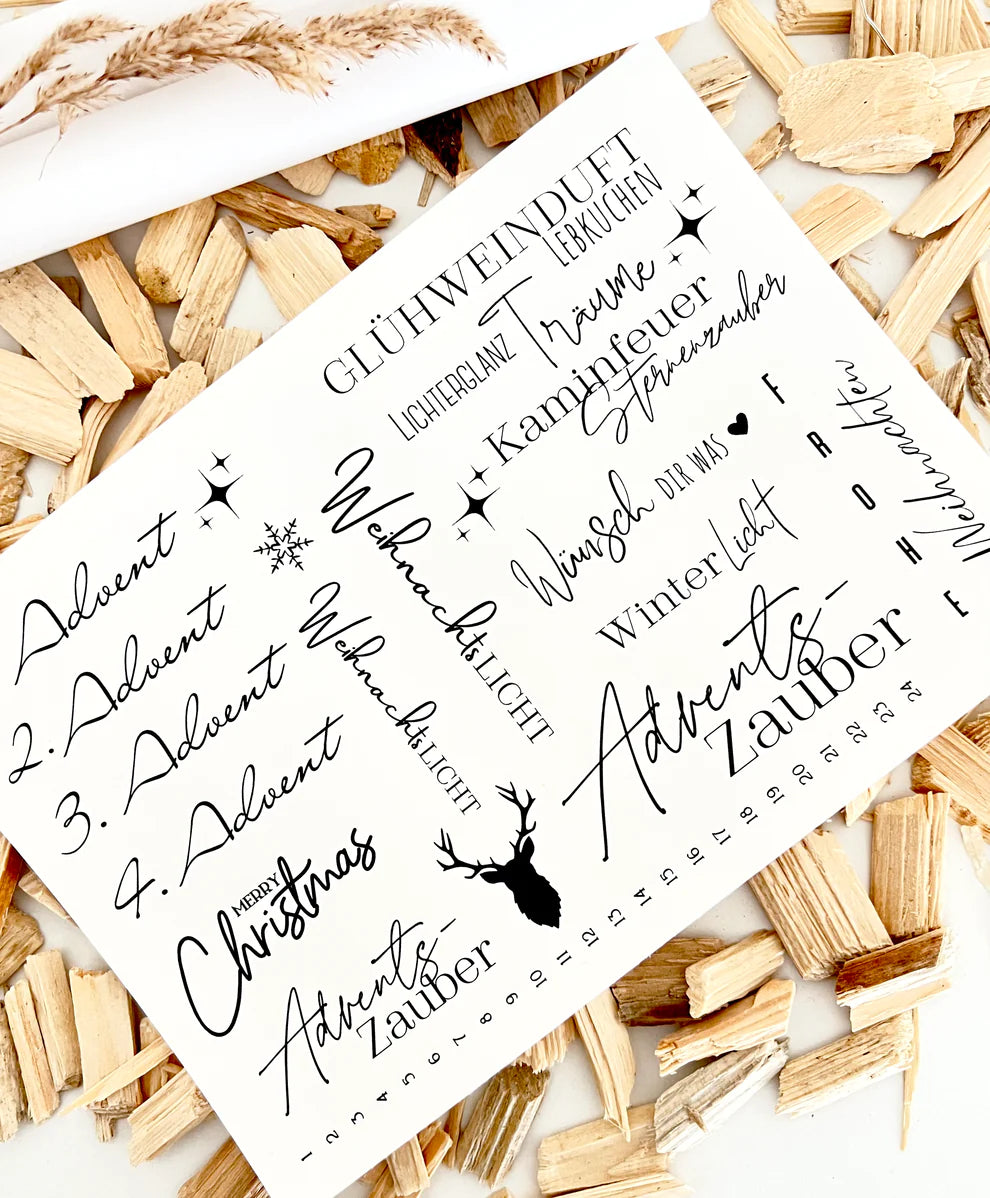 GLÜHWEINDUFT
LEBKUCHEN
LICHTERGLANZ Träume
Kaminfeuer
Sternenzauber
Wünsch DIR WAS
Winter Licht
Advents-
Zauber
FROHE
Weihnachten
WeihnachtsLICHT
WeihnachtsLICHT
Advent
2. Advent
3. Advent
4. Advent
MERRY
Christmas
Advents-
Zauber
1 2 3 4 5 6 7 8 9 10 11 12 13 14 15 16 17 18 19 20 21 22 23 24